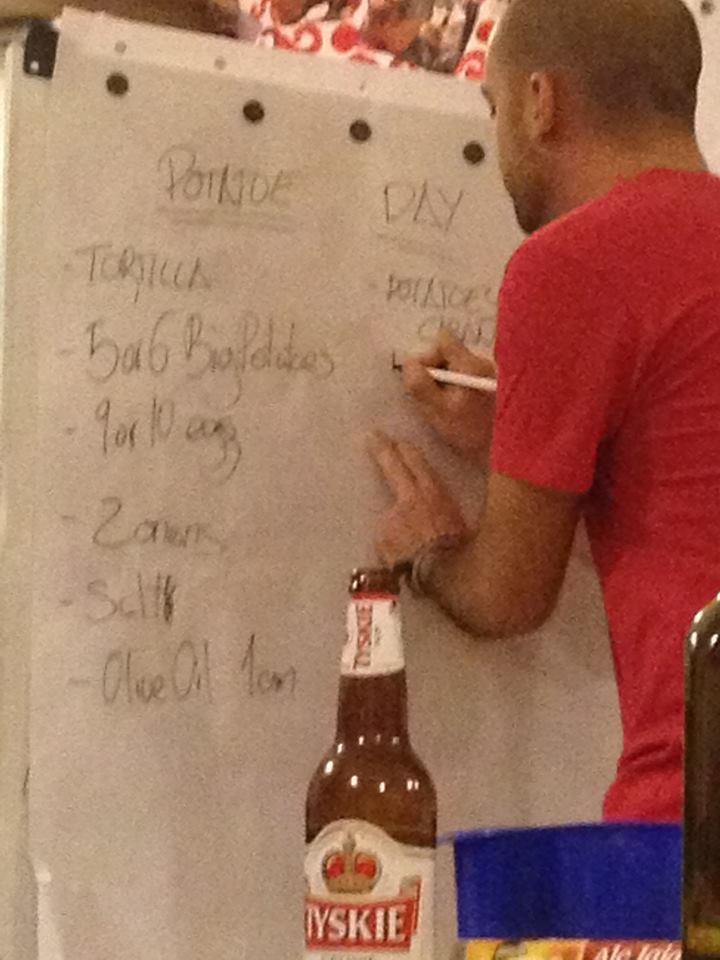 POTATOE DAY
- TORTILLA
- 5 or 6 Big Potatoes
- 9 or 10 eggs
- 2 onions
- Salt
- Olive Oil 1 cm
- POTATOES
TYSKIE
TYSKIE
Ale jaja